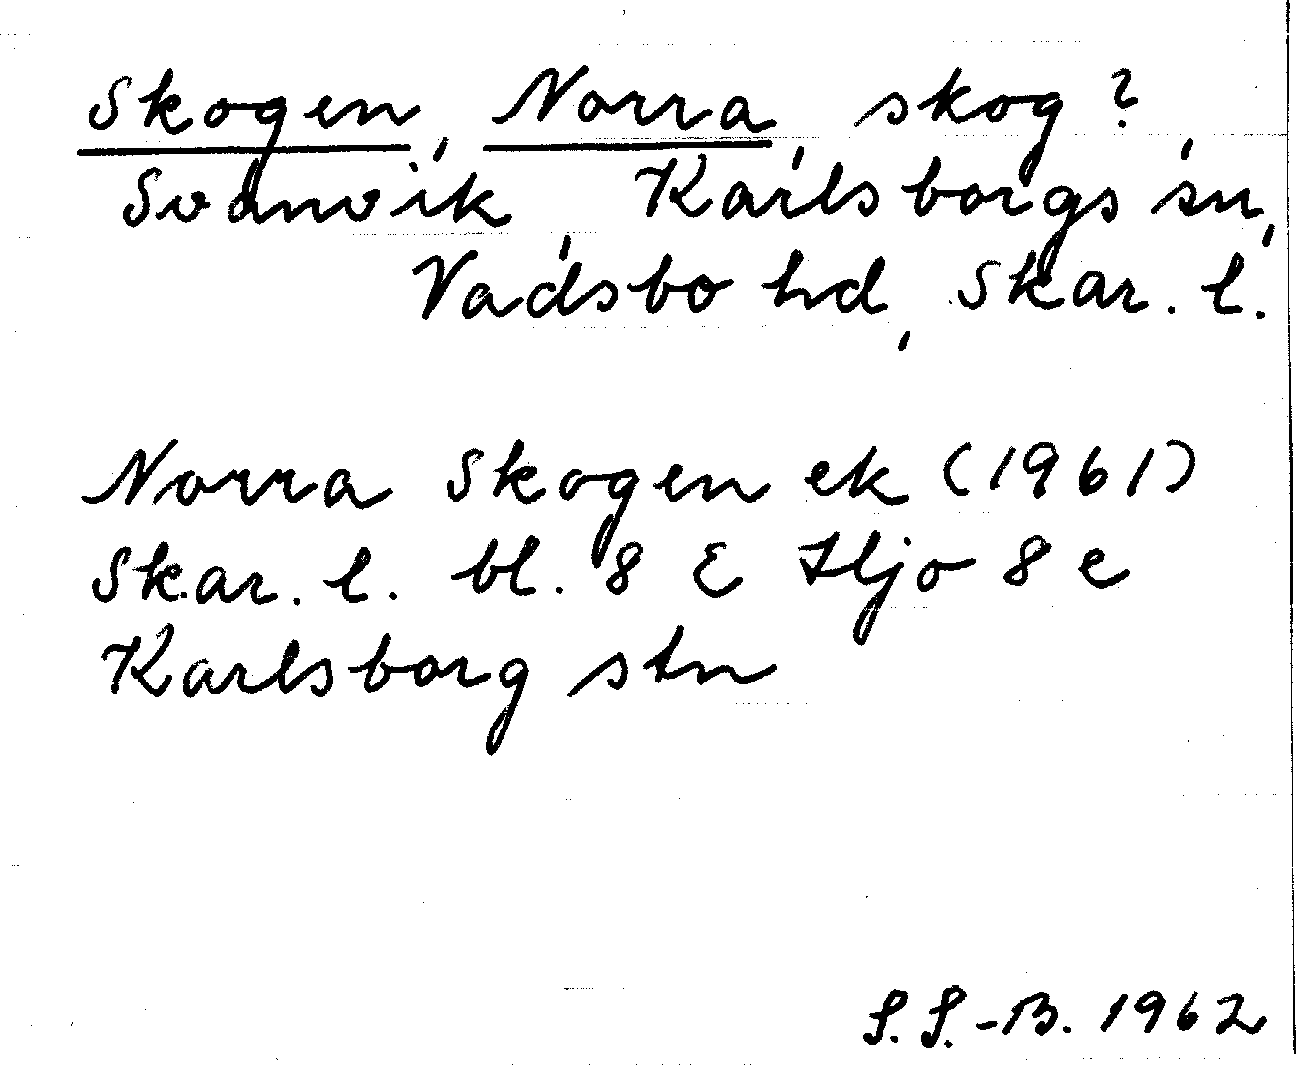 Skogen, Norra, skog?,
Svanvik, Karlsborgs sn,
Vadsbo hd, Skar. l.
Norra Skogen ek (1961)
Skar. l. bl. 8 E Hjo 8 e
Karlsborg stn
S.S.-B. 1962